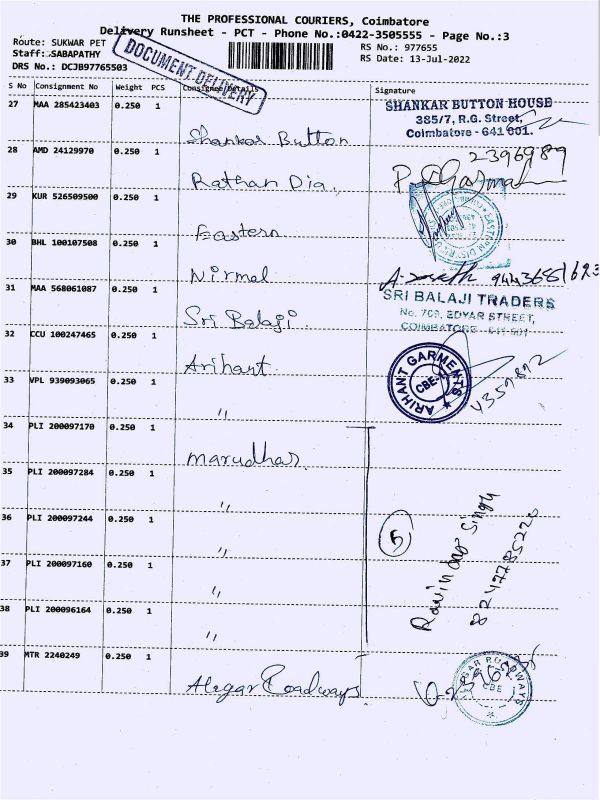 THE PROFESSIONAL COURIERS, Coimbatore
Delivery Runsheet - PCT - Phone No.:0422-3505555 - Page No.:3
Route: SUKWAR PET
Staff:.SABAPATHY
DRS No.: DCJB97765503
DOCUMENT DELIVERY
RS No.: 977655
RS Date: 13-Jul-2022
S No Consignment No Weight PCS Consignee Details Signature
27 MAA 285423403 0.250 1
Shankar Button
SHANKAR BUTTON HOUSE
385/7, R.G. Street,
Coimbatore - 641 001.
28 AMD 24129970 0.250 1
Rathan Dia
2396989
29 KUR 526509500 0.250 1
Eastern
30 BHL 100107508 0.250 1
Nirmal
31 MAA 568061087 0.250 1
Sri Balaji
SRI BALAJI TRADERS
EDYAR STREET,
COIMBATORE
32 CCU 100247465 0.250 1
Arihant
ARIHANT GARMENTS
CBE-1
4359892
33 VPL 939093065 0.250 1
"
34 PLI 200097170 0.250 1
Marudhar
35 PLI 200097284 0.250 1
"
36 PLI 200097244 0.250 1
"
5
37 PLI 200097160 0.250 1
"
38 PLI 200096164 0.250 1
"
Singh
39 MTR 2240249 0.250 1
Alagar Roadways
ROADWAYS
CBE